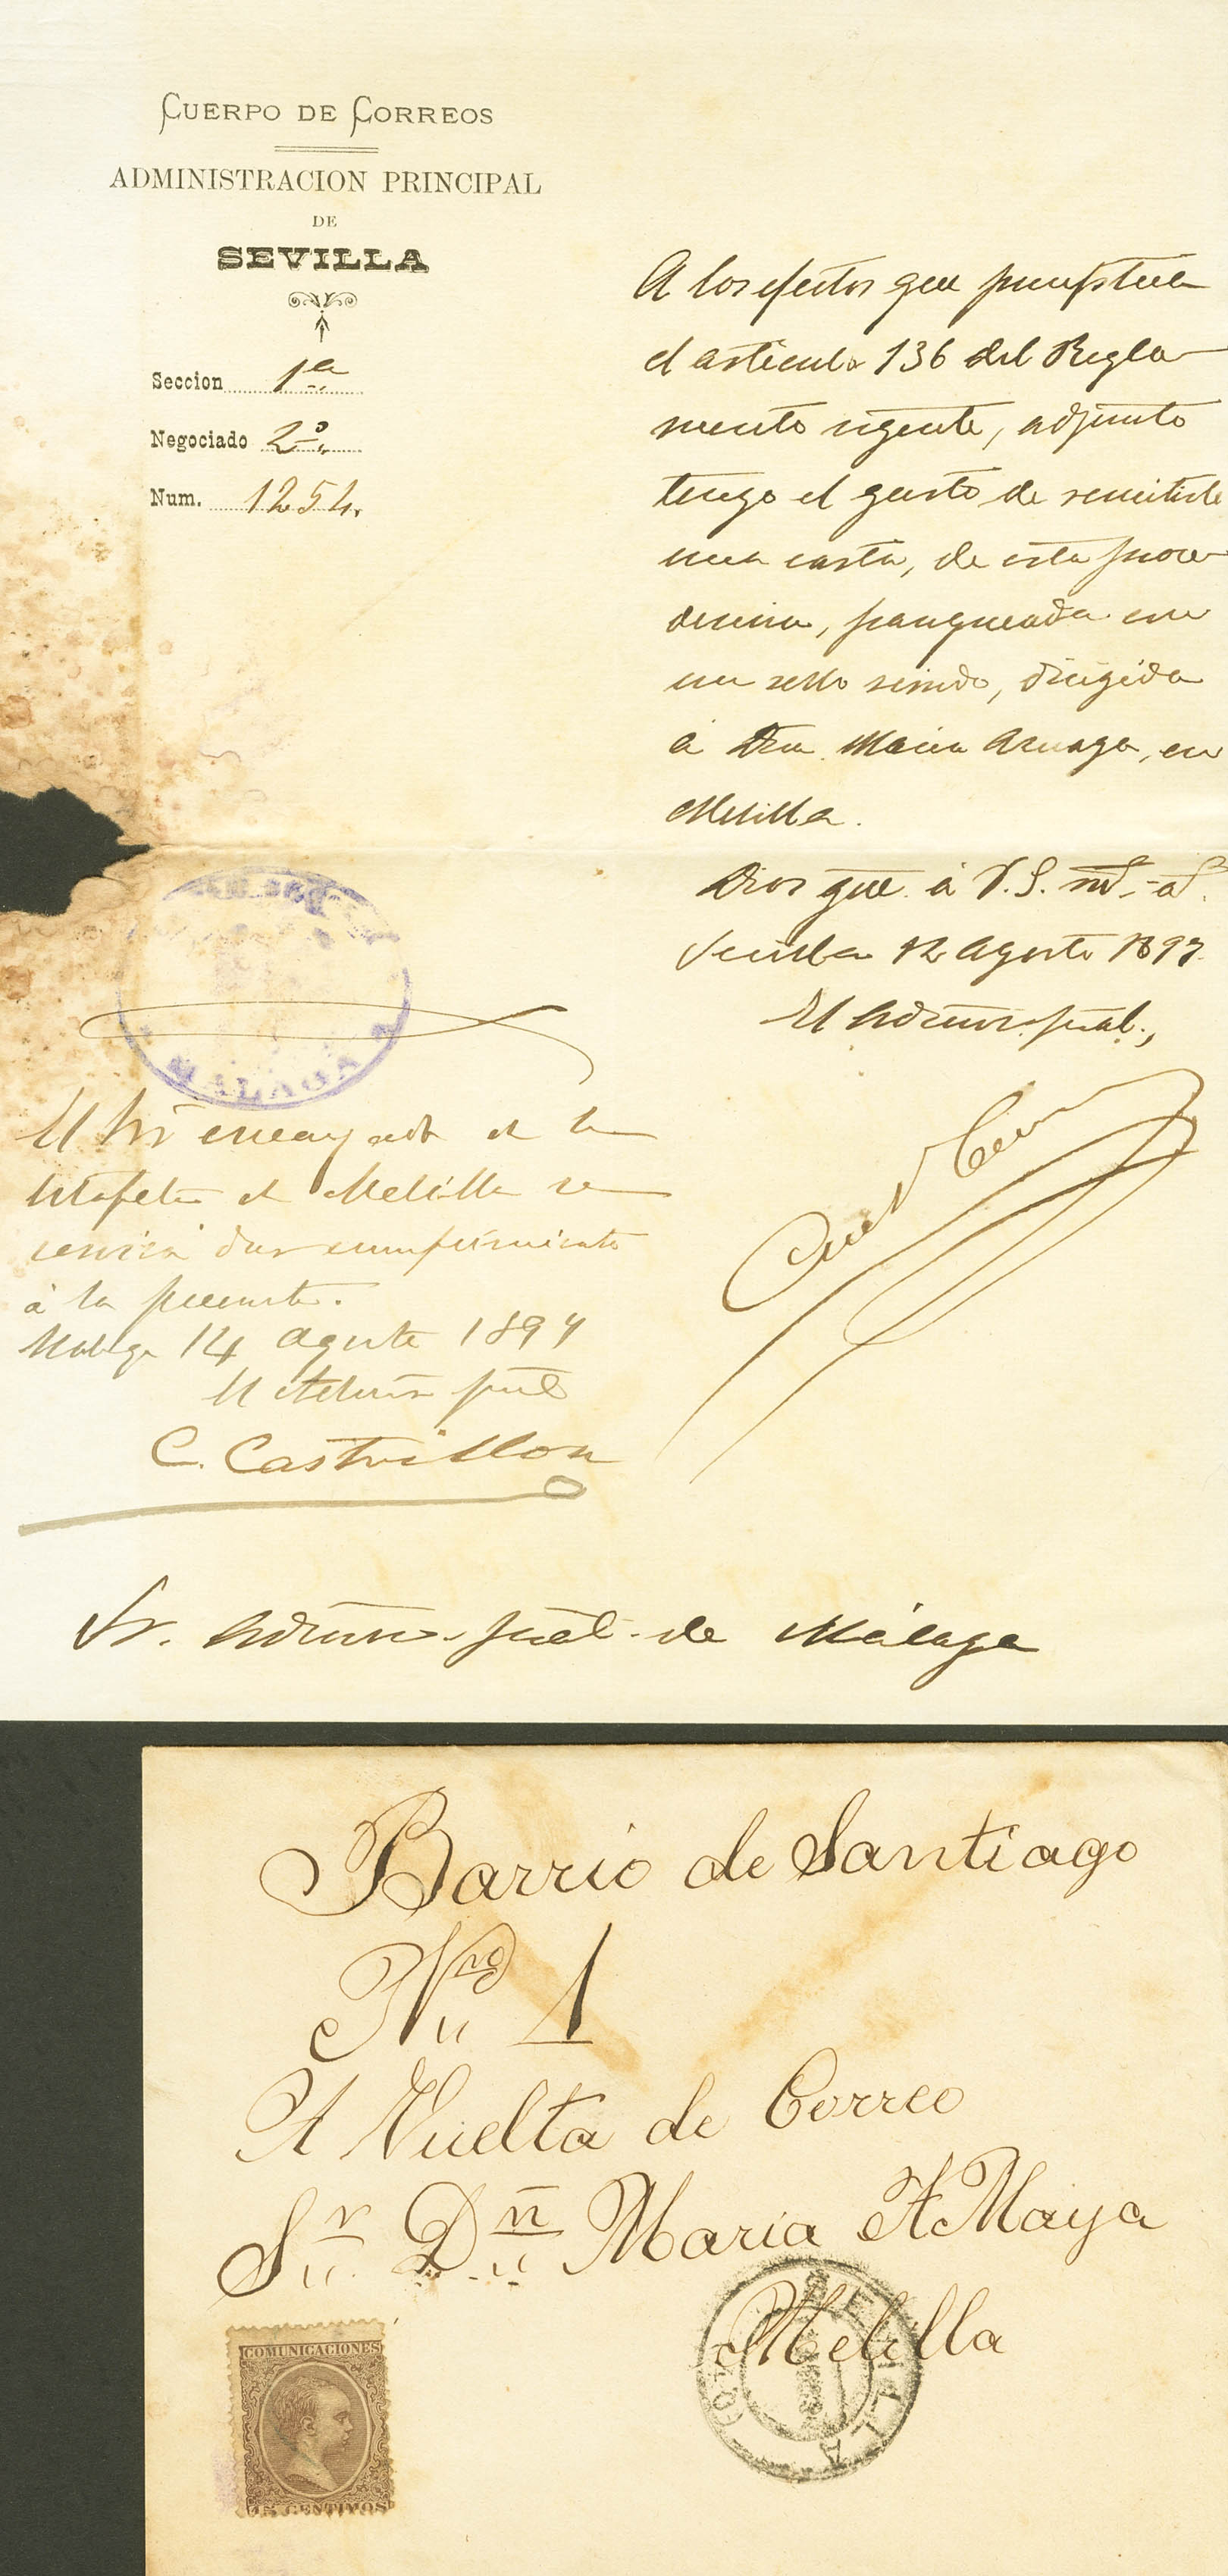 CUERPO DE CORREOS
ADMINISTRACION PRINCIPAL
DE
SEVILLA
Seccion 1ª
Negociado 2º
Num. 1254.
A los efectos que
el articulo 136 del Regla-
mento vigente, adjunto
tengo el gusto de remitirle
una carta, de esta proce-
dencia, franqueada con
un sello servido, dirigida
á Dña. Maria en
Melilla.
Dios gue. á V.S. ms. as.
Sevilla 12 Agosto 1897.
El Admor. pral.,
MALAGA
El Sr encargado de la
Estafeta de Melilla se
servirá dar cumplimiento
á la presente.
Malaga 14 agosto 1897
El Admor pral
C. Castrillon
Sr. Admor. pral. de Málaga
Barrio de Santiago
Nro 1
A Vuelta de Correo
Sr Dñ Maria AMaya
Melilla
SEVILLA
COMUNICACIONES
15 CENTIMOS